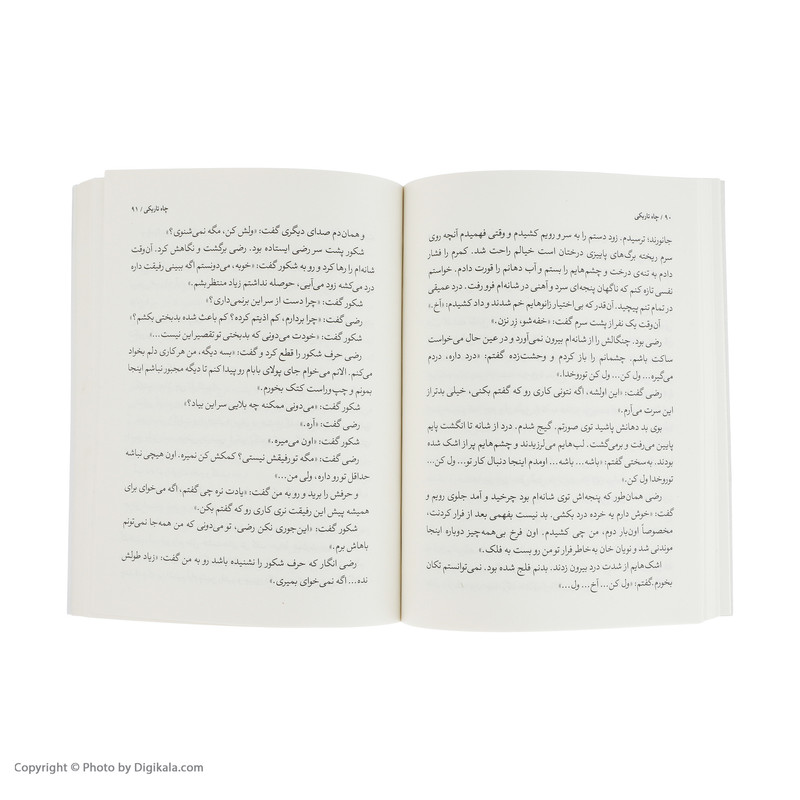 ۹۰ / چاه تاریکی
جانورند؛ ترسیدم. زود دستم را به سر و رویم کشیدم و وقتی فهمیدم آنچه روی
سرم ریخته برگ‌های پاییزی درختان است خیالم راحت شد. کمرم را فشار
دادم به تنه‌ی درخت و چشم‌هایم را بستم و آب دهانم را قورت دادم. خواستم
نفسی تازه کنم که ناگهان پنجه‌ای سرد و آهنی در شانه‌ام فرو رفت. درد عمیقی
در تمام تنم پیچید، آن‌قدر که بی‌اختیار زانوهایم خم شدند و داد کشیدم: «آخ.»
آن‌وقت یک نفر از پشت سرم گفت: «خفه‌شو، زر نزن.»
رضی بود. چنگالش را از شانه‌ام بیرون نمی‌آورد و در عین حال می‌خواست
ساکت باشم. چشمانم را باز کردم و وحشت‌زده گفتم: «درد داره، دردم
می‌گیره... ول کن... ول کن توروخدا.»
رضی گفت: «این اولشه. اگه نتونی کاری رو که گفتم بکنی، خیلی بدتر از
این سرت می‌آرم.»
بوی بد دهانش پاشید توی صورتم. گیج شدم. درد از شانه تا انگشت پایم
پایین می‌رفت و برمی‌گشت. لب‌هایم می‌لرزیدند و چشم‌هایم پر از اشک شده
بودند. به‌سختی گفتم: «باشه... باشه... اومدم اینجا دنبال کار تو... ول کن...
توروخدا ول کن.»
رضی همان‌طور که پنجه‌اش توی شانه‌ام بود چرخید و آمد جلوی رویم و
گفت: «خوش دارم یه خرده درد بکشی. بد نیست بفهمی بعد از فرار کردنت،
مخصوصاً اون‌بار دوم، من چی کشیدم. اون فرخ بی‌همه‌چیز دوباره اینجا
موندنی شد و نویان خان به‌خاطر فرار تو من رو بست به فلک.»
اشک‌هایم از شدت درد بیرون زدند. بدنم فلج شده بود. نمی‌توانستم تکان
بخورم. گفتم: «ول کن... آخ... ول...»
چاه تاریکی / ۹۱
و همان‌دم صدای دیگری گفت: «ولش کن، مگه نمی‌شنوی؟»
شکور پشت سر رضی ایستاده بود. رضی برگشت و نگاهش کرد. آن‌وقت
شانه‌ام را رها کرد و رو به شکور گفت: «خوبه، می‌دونستم اگه ببینی رفیقت داره
درد می‌کشه زود می‌آیی، حوصله نداشتم زیاد منتظر بشم.»
شکور گفت: «چرا دست از سر این برنمی‌داری؟»
رضی گفت: «چرا بردارم، کم اذیتم کرده؟ کم باعث شده بدبختی بکشم؟»
شکور گفت: «خودت می‌دونی که بدبختی تو تقصیر این نیست...»
رضی حرف شکور را قطع کرد و گفت: «بسه دیگه. من هر کاری دلم بخواد
می‌کنم. الانم می‌خوام جای پولای بابام رو پیدا کنم تا دیگه مجبور نباشم اینجا
بمونم و چپ‌وراست کتک بخورم.»
شکور گفت: «می‌دونی ممکنه چه بلایی سر این بیاد؟»
رضی گفت: «آره.»
شکور گفت: «اون می‌میره.»
رضی گفت: «مگه تو رفیقش نیستی؟ کمکش کن نمیره. اون هیچی نباشه
حداقل تو رو داره، ولی من...»
و حرفش را برید و رو به من گفت: «یادت نره چی گفتم، اگه می‌خوای برای
همیشه پیش این رفیقت نری کاری رو که گفتم بکن.»
شکور گفت: «این‌جوری نکن رضی، تو می‌دونی که من همه‌جا نمی‌تونم
باهاش برم.»
رضی انگار که حرف شکور را نشنیده باشد رو به من گفت: «زیاد طولش
نده... اگه نمی‌خوای بمیری.»
Copyright © Photo by Digikala.com